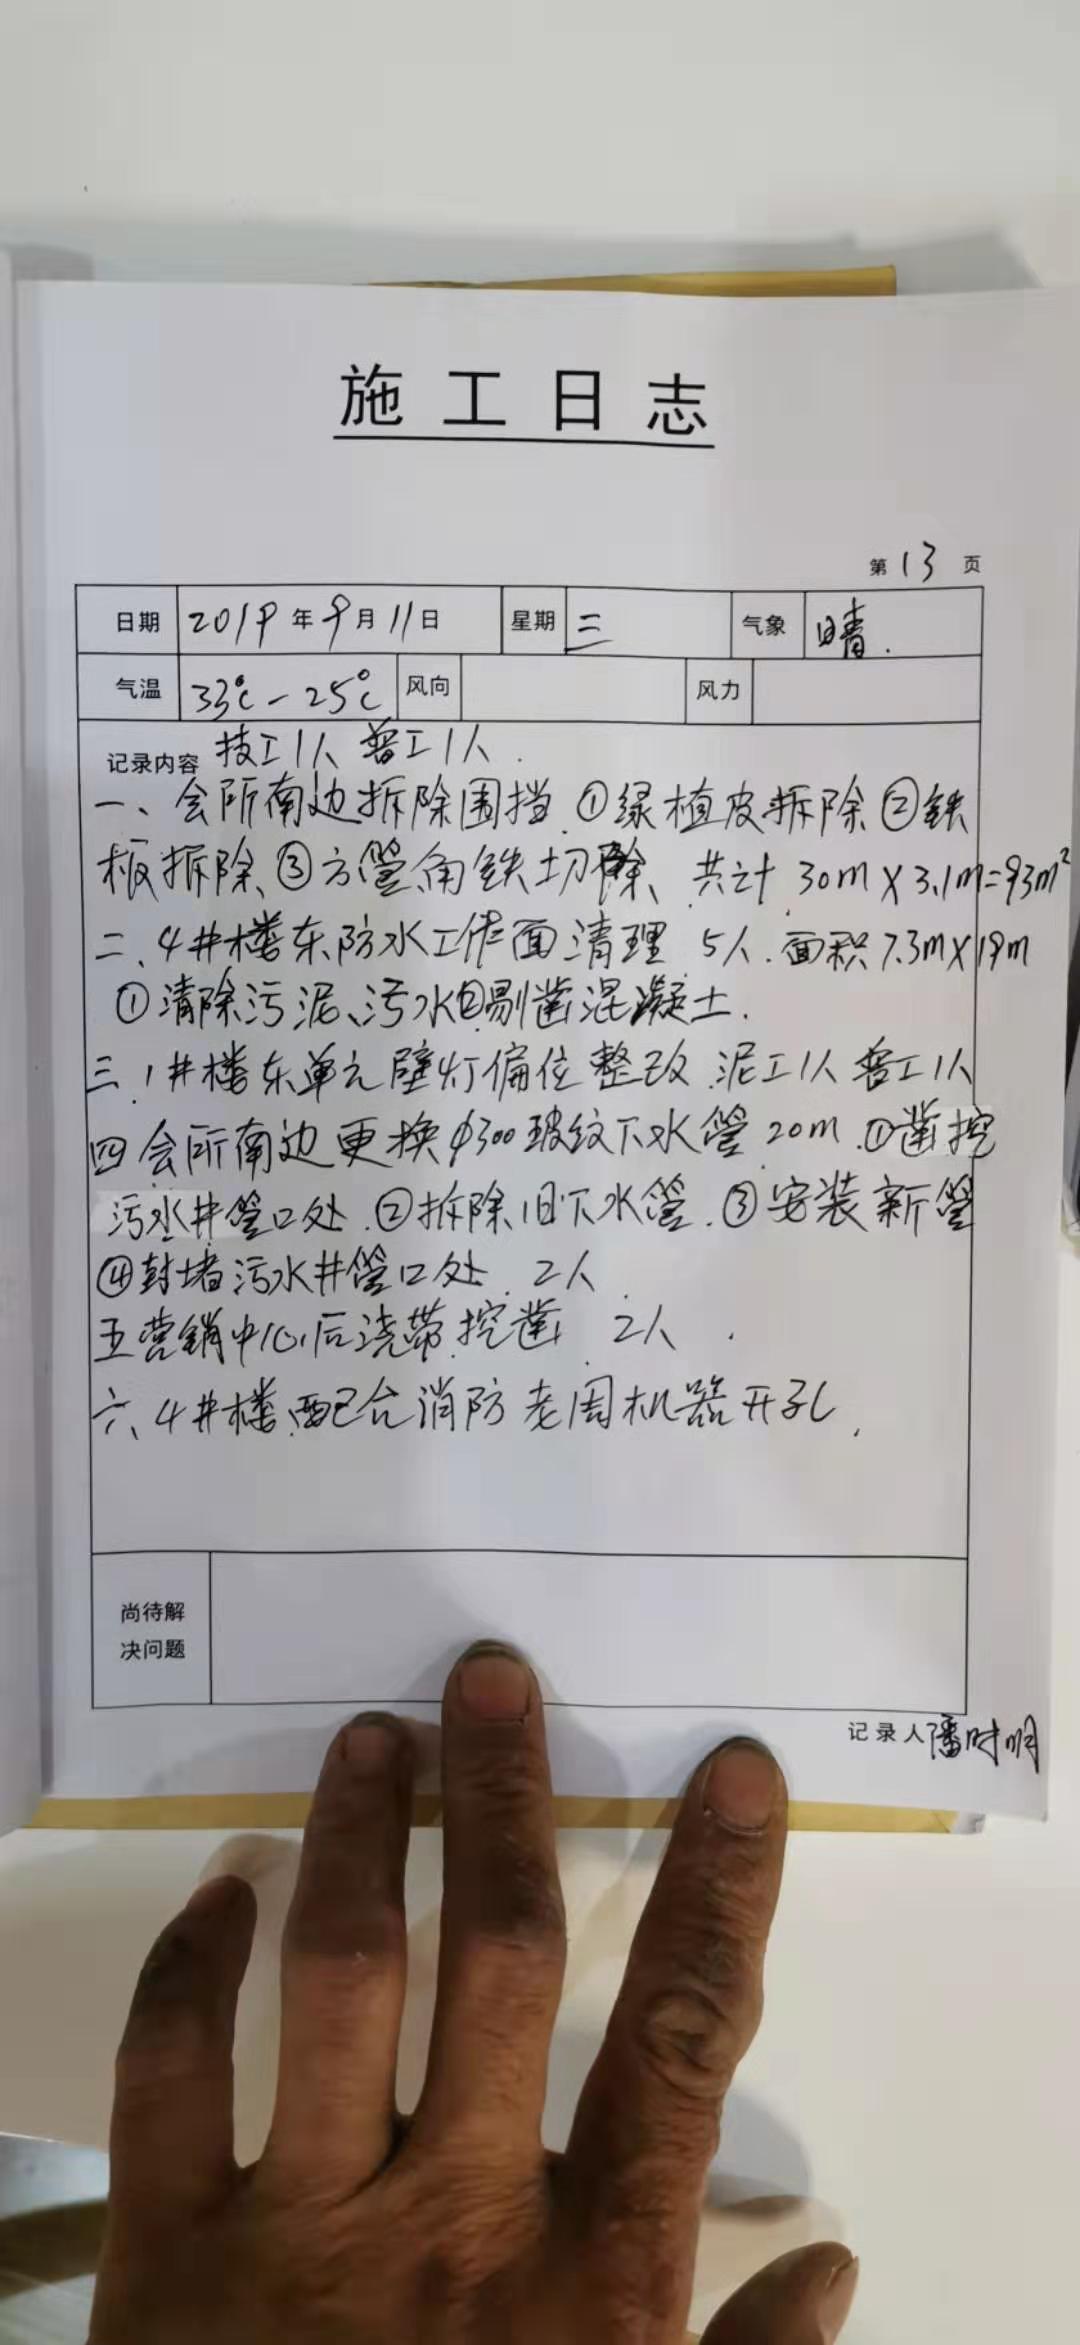 施工日志
第13页
日期 2019年9月11日 星期 三 气象 晴.
气温 33℃-25℃ 风向 风力
记录内容 技工1人 普工1人.
一、会所南边拆除围挡 ①绿植皮拆除 ②铁
板拆除、③方管角铁切除、共计 30m×3.1m=93m²
二、4井楼东防水工作面清理 5人. 面积7.3m×19m
①清除污泥、污水②剔凿混凝土.
三、1井楼东单元壁灯偏位整改 泥工1人 普工1人
四 会所南边更换φ300玻纹下水管 20m.①凿挖
污水井管口处.②拆除旧下水管.③安装新管
④封堵污水井管口处. 2人
五营销中心后浇带挖凿 2人.
六、4井楼配合消防老周机器开孔.
尚待解
决问题
记录人 潘时明